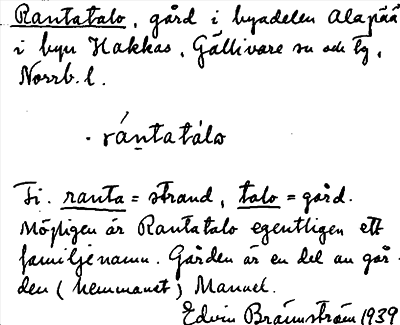 Rantatalo, gård i byadelen Alapää
i byn Hakkas, Gällivare sn och tg,
Norrb. l.
rántatálo
Fi. ranta = strand, talo = gård.
Möjligen är Rantatalo egentligen ett
familjenamn. Gården är en del av går-
den (hemmanet) Manuel.
Edvin Brännström 1939